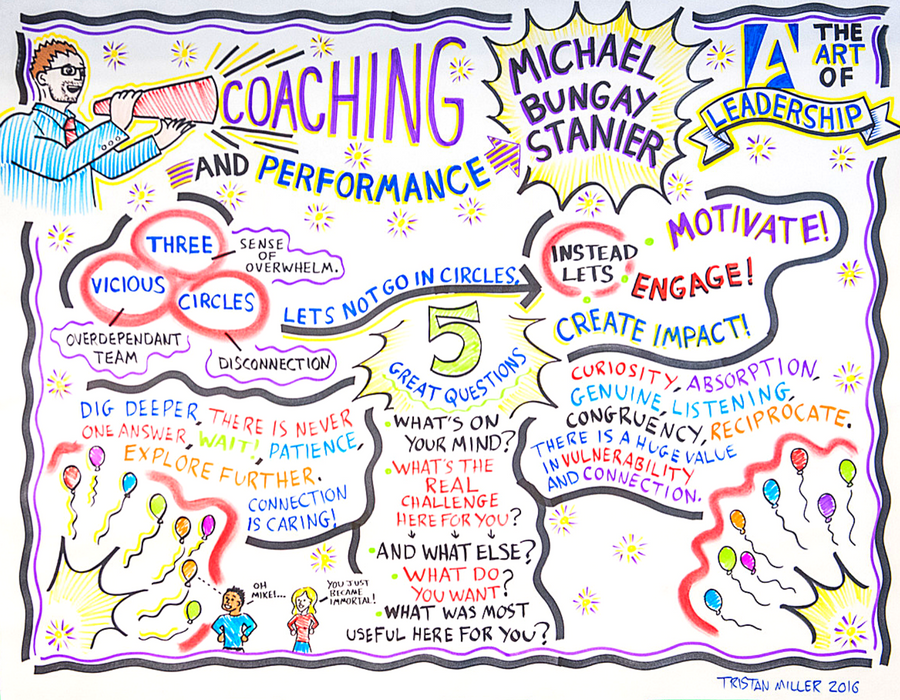 COACHING
AND PERFORMANCE
MICHAEL
BUNGAY
STANIER
THE
ART
OF
LEADERSHIP
THREE
VICIOUS
CIRCLES
SENSE
OF
OVERWHELM.
OVERDEPENDANT
TEAM
DISCONNECTION
LETS NOT GO IN CIRCLES,
INSTEAD
LETS
MOTIVATE!
ENGAGE!
CREATE IMPACT!
5
GREAT QUESTIONS
DIG DEEPER, THERE IS NEVER
ONE ANSWER, WAIT!, PATIENCE,
EXPLORE FURTHER.
CONNECTION
IS CARING!
WHAT'S ON
YOUR MIND?
WHAT'S THE
REAL
CHALLENGE
HERE FOR YOU?
AND WHAT ELSE?
WHAT DO
YOU WANT?
WHAT WAS MOST
USEFUL HERE FOR YOU?
CURIOSITY, ABSORPTION,
GENUINE, LISTENING,
CONGRUENCY, RECIPROCATE.
THERE IS A HUGE VALUE
IN VULNERABILITY
AND CONNECTION.
OH
MIKE!...
YOU JUST
BECAME
IMMORTAL!
TRISTAN MILLER 2016